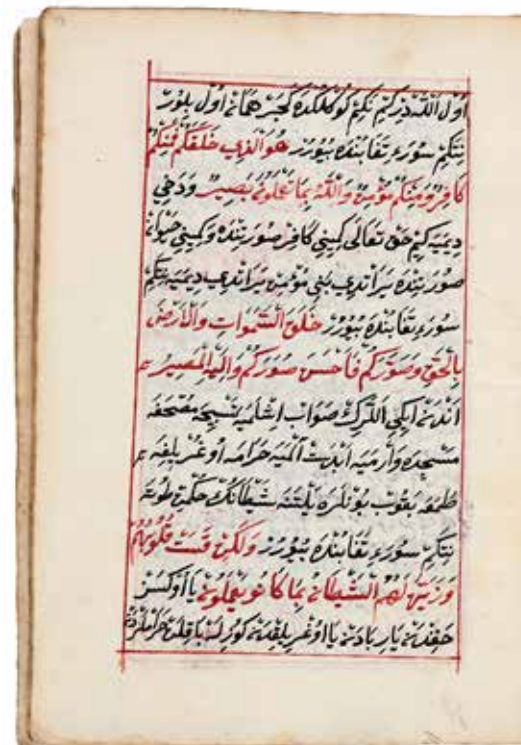 اول اللهدر كم نكم كوكلكده كجر همان اول بلور
نتكم سورۀ تغابنده بيورر هُوَ الَّذِي خَلَقَكُمْ فَمِنْكُمْ
كَافِرٌ وَمِنْكُمْ مُؤْمِنٌ وَاللّٰهُ بِمَا تَعْمَلُونَ بَصِيرٌ ودخي
ديميه كم حق تعالى كيمني كافر صورتنده وكيمني حيوان
صورتنده يراتدي بني مؤمن يراتدي ديميه نتكم
سورۀ تغابنده بيورر خَلَقَ السَّمٰوَاتِ وَالْأَرْضَ
بِالْحَقِّ وَصَوَّرَكُمْ فَأَحْسَنَ صُوَرَكُمْ وَإِلَيْهِ الْمَصِيرُ
اندن ايكي اللرك صواب اشلميه تسبيحه مصحفه
مسجده وارميه ابدست الميه حرامه اوغريلغه
طمعه يقوب بونلره شيطانك
نتكم سورۀ بيورر وَلٰكِنْ قَسَتْ قُلُوبُهُمْ
وَزَيَّنَ لَهُمُ الشَّيْطَانُ مَا كَانُوا يَعْمَلُونَ يا اوكسز
حقندن يا ربادن يا اوغريلقدن